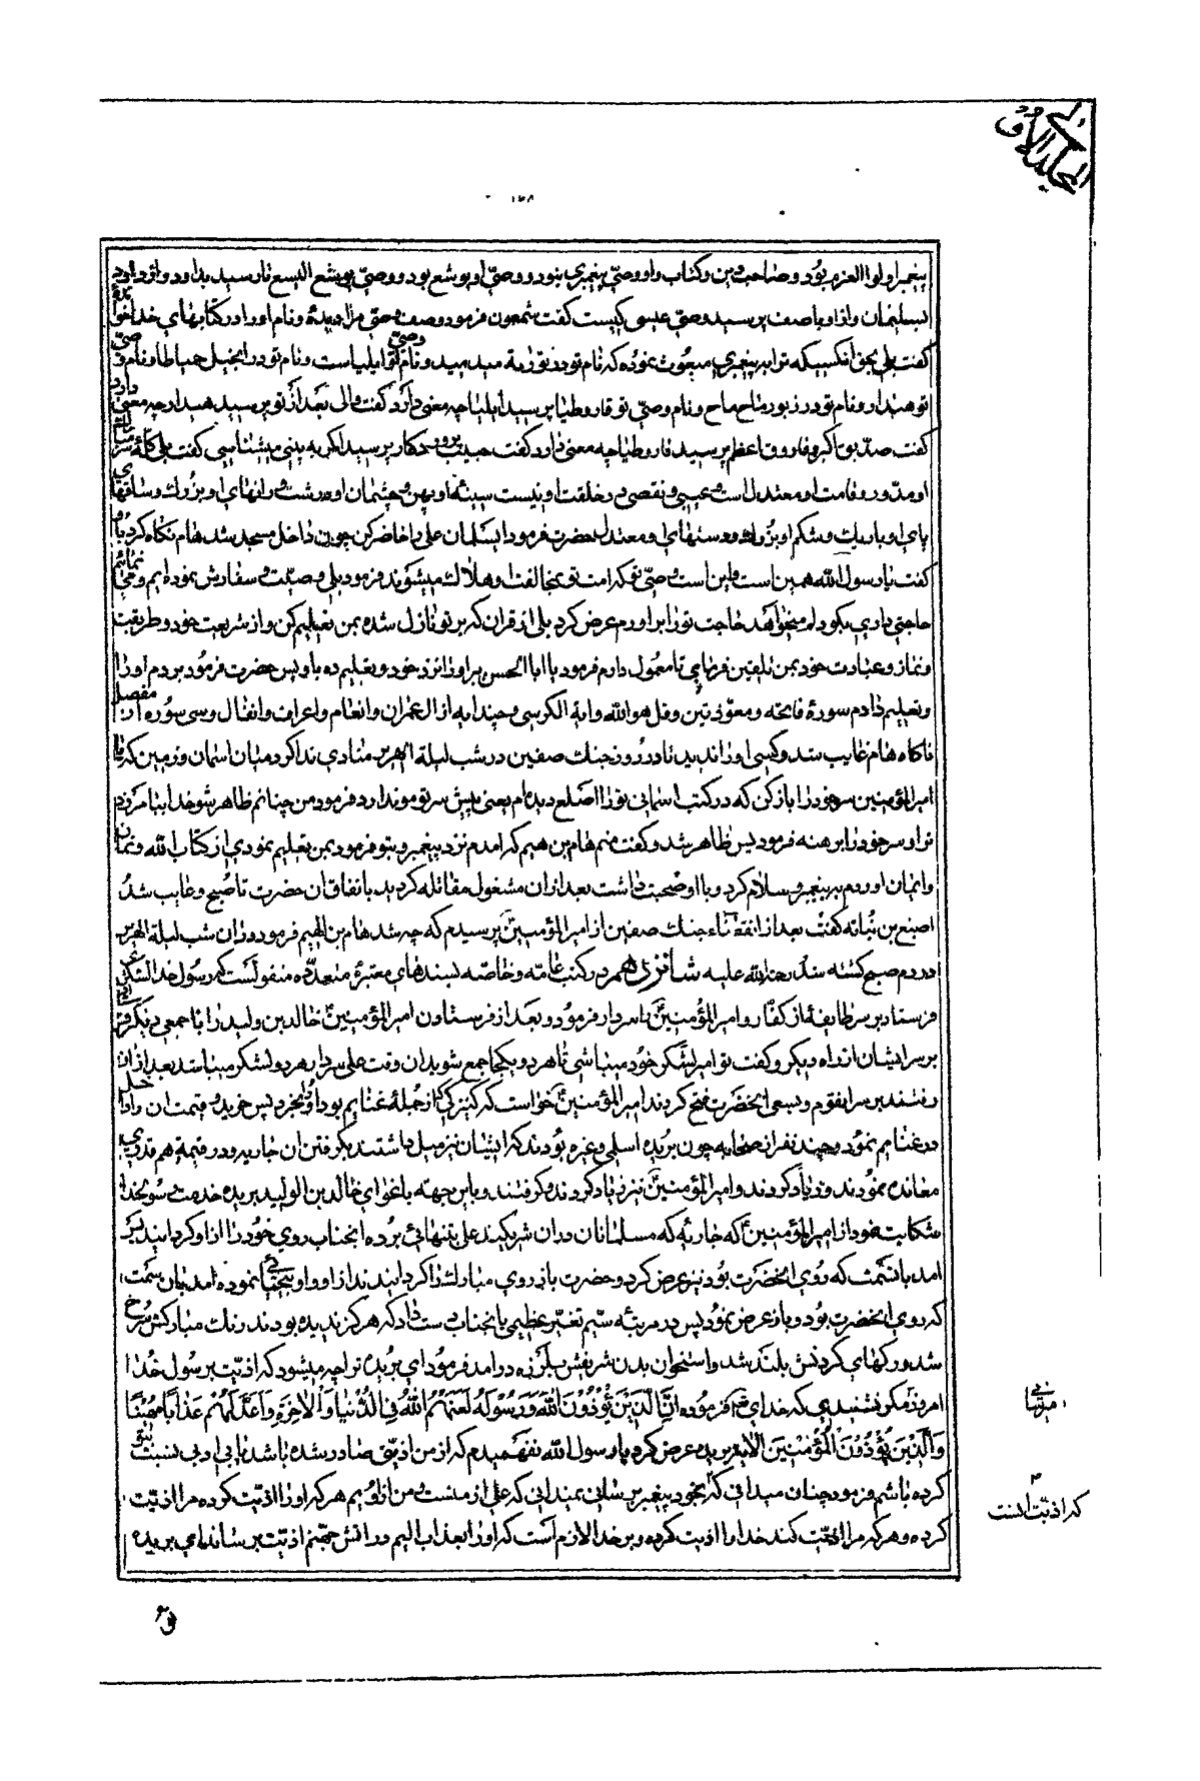 المجلد الاول
۱۲۸
پیغمبر اولوا العزم بود و صاحب دین و کتاب و او وصی پیغمبری بنود و وصی او یوشع بود و وصی یوشع الیسع تا رسید بداود و از داود
بسلیمان و از او باصف پرسید وصی عیسی کیست گفت شمعون فرمود وصف وصی مرا دیدهٔ و نام او را در کتابهای خدا خواندهٔ
گفت بلی بحق انکسیکه ترا به پیغمبری مبعوث نموده که نام تو در توریة مید مید و نام وصی تو ایلیا است و نام تو در انجیل حمیاطا و نام وصی
تو هیدار و نام تو در زبور ماح ماح و نام وصی تو قاروطیا پرسید ایلیا چه معنی دارد گفت ولی بعد از تو پرسید هیدار چه معنی دارد
گفت صدیق اکبر و فاروق اعظم پرسید فاروطیا چه معنی دارد گفت حبیب پروردکار پرسید اکر به بینی میشناسی گفت بلی
او مدور و قامت او معتدل است و عیبی و نقصی در خلقت او نیست سینهٔ او پهن و چشمان او درشت و رانهای او بزرك و ساقهای
پای او باریك و شکم او بزرك و دستهای او معتدل حضرت فرمود ایسلمان علی را حاضر کن چون داخل مسجد شد هام نکاه کرد باو
گفت یا رسول الله همین است و این است وصی تو که امت تو بمخالفت او هلاك میشوند فرمود بلی وصیت و سفارش نموده ایم
حاجتی داری بکو دلم میخواهد حاجت تو را براورم عرض کرد بلی از قران که بر تو نازل شده بمن تعلیم کن و از شریعت خود و طریقت
و نماز و عبادت خود بمن تلقین فرمای تا معمول دارم فرمود یا ابا الحسن ببر او را نزد خود و تعلیم ده باو پس حضرت فرمود بردم او را
و تعلیم دادم سورهٔ فاتحه و معوذتین و قل هو الله و ایة الکرسی و چند ایه از ال عمران و انعام و اعراف و انفال و سی سوره از مفصل
ناکاه هام غایب شد و کسی او را ندید تا در روز جنك صفین در شب لیلة الهریر منادی ندا کرد میان اسمان و زمین که یا
امیر المؤمنین سر خود را باز کن که در کتب اسمانی تو را اصلع دیده ام یعنی پیش سر تو مو ندارد فرمود من چنانم ظاهر شو خدا بیامرزد
ترا و سر خود را برهنه فرمود پس ظاهر شد و گفت منم هام بن هیم که امدم نزد پیغمبر و بتو فرمود بمن تعلیم نمودی از کتاب الله و نماز
و ایمان اوردم به پیغمبر و سلام کرد و با او صحبت داشت بعد از ان مشغول مقاتله کردید باتفاق ان حضرت تا صبح و غایب شد
اصبغ بن نباته گفت بعد از انقضاء جنك صفین از امیر المؤمنین پرسیدم که چه شد هام بن الهیم فرمود در ان شب لیلة الهریر
در دم صبح کشته شد رحمة الله علیه شانزدهم در کتب عامه و خاصه بسندهای معتبرهٔ متعدده منقولست که رسول خدا لشکری
فرستاد بر سر طایفهٔ از کفار و امیر المؤمنین را سردار فرمود و بعد از فرستادن امیر المؤمنین خالد بن ولید را با جمعی دیکر فرستاد
بر سر ایشان از راه دیکر و گفت تو امیر لشکر خود میباشی تا هر دو یکجا جمع شوید ان وقت علی سردار هر دو لشکر میباشد بعد از ان
رفتند بر سر انقوم و بسعی انحضرت فتح کردند امیر المؤمنین خواست که کنیزکی که از جملهٔ غنایم بود او را بخرد پس خرید و قیمت ان را داخل
در غنایم نمود و چند نفر از صحابه چون بریده اسلمی و غیره بودند که ایشان نیز میل داشتند بکرفتن ان جاریه و در قیمة هم قدری
معانده نمودند و زیاد کردند و امیر المؤمنین نیز زیاد کردند و کرفتند و باین جهة باغوای خالد بن الولید بریده خدمت رسولخدا
شکایت نمود از امیر المؤمنین که جاریهٔ که مسلمانان در ان شریکند علی بتنهائی برده انجناب روی خود را از او کردانید پس
امد بانسمت که روی انحضرت بود نیز عرض کرد و حضرت باز روی مبارك را کردانیدند از او و او بیحیائی نموده امد بان سمت
که روی انحضرت بود و باز عرض نمود پس در مرتبهٔ سیم تغیر عظیمی بانجناب دست داد که هرکز ندیده بودند رنك مبارکش سرخ
شد و رکهای کردنش بلند شد و استخوان بدن شریفش بلرزه در امد فرمود ای بریده ترا چه میشود که اذیت بر رسول خدا
امروز مکر نشنیدی که خدای فرموده اِنَّ الَّذینَ یُؤْذُونَ اللهَ وَ رَسُولَهُ لَعَنَهُمُ اللهُ فِی الدُّنْیا وَ الْاخِرَةِ وَ اَعَدَّ لَهُمْ عَذاباً مُهیناً
وَ الَّذینَ یُؤْذُونَ الْمُؤْمِنینَ الایه بریده عرض کرد یا رسول الله نفهمیدم که از من اذیتی صادر شده باشد یا بی ادبی نسبت بتو
کرده باشم فرمود چنان میدانی که بخود پیغمبر برسانی نمیدانی که علی از منست و من از اویم هر که او را اذیت کرده مرا اذیت
کرده و هر که مرا اذیت کند خدا را اذیت کرده و بر خدا لازم است که او را بعذاب الیم در اتش جهنم اذیت برساند ای بریده
میرسانی
۲
که اذیت انست
تو